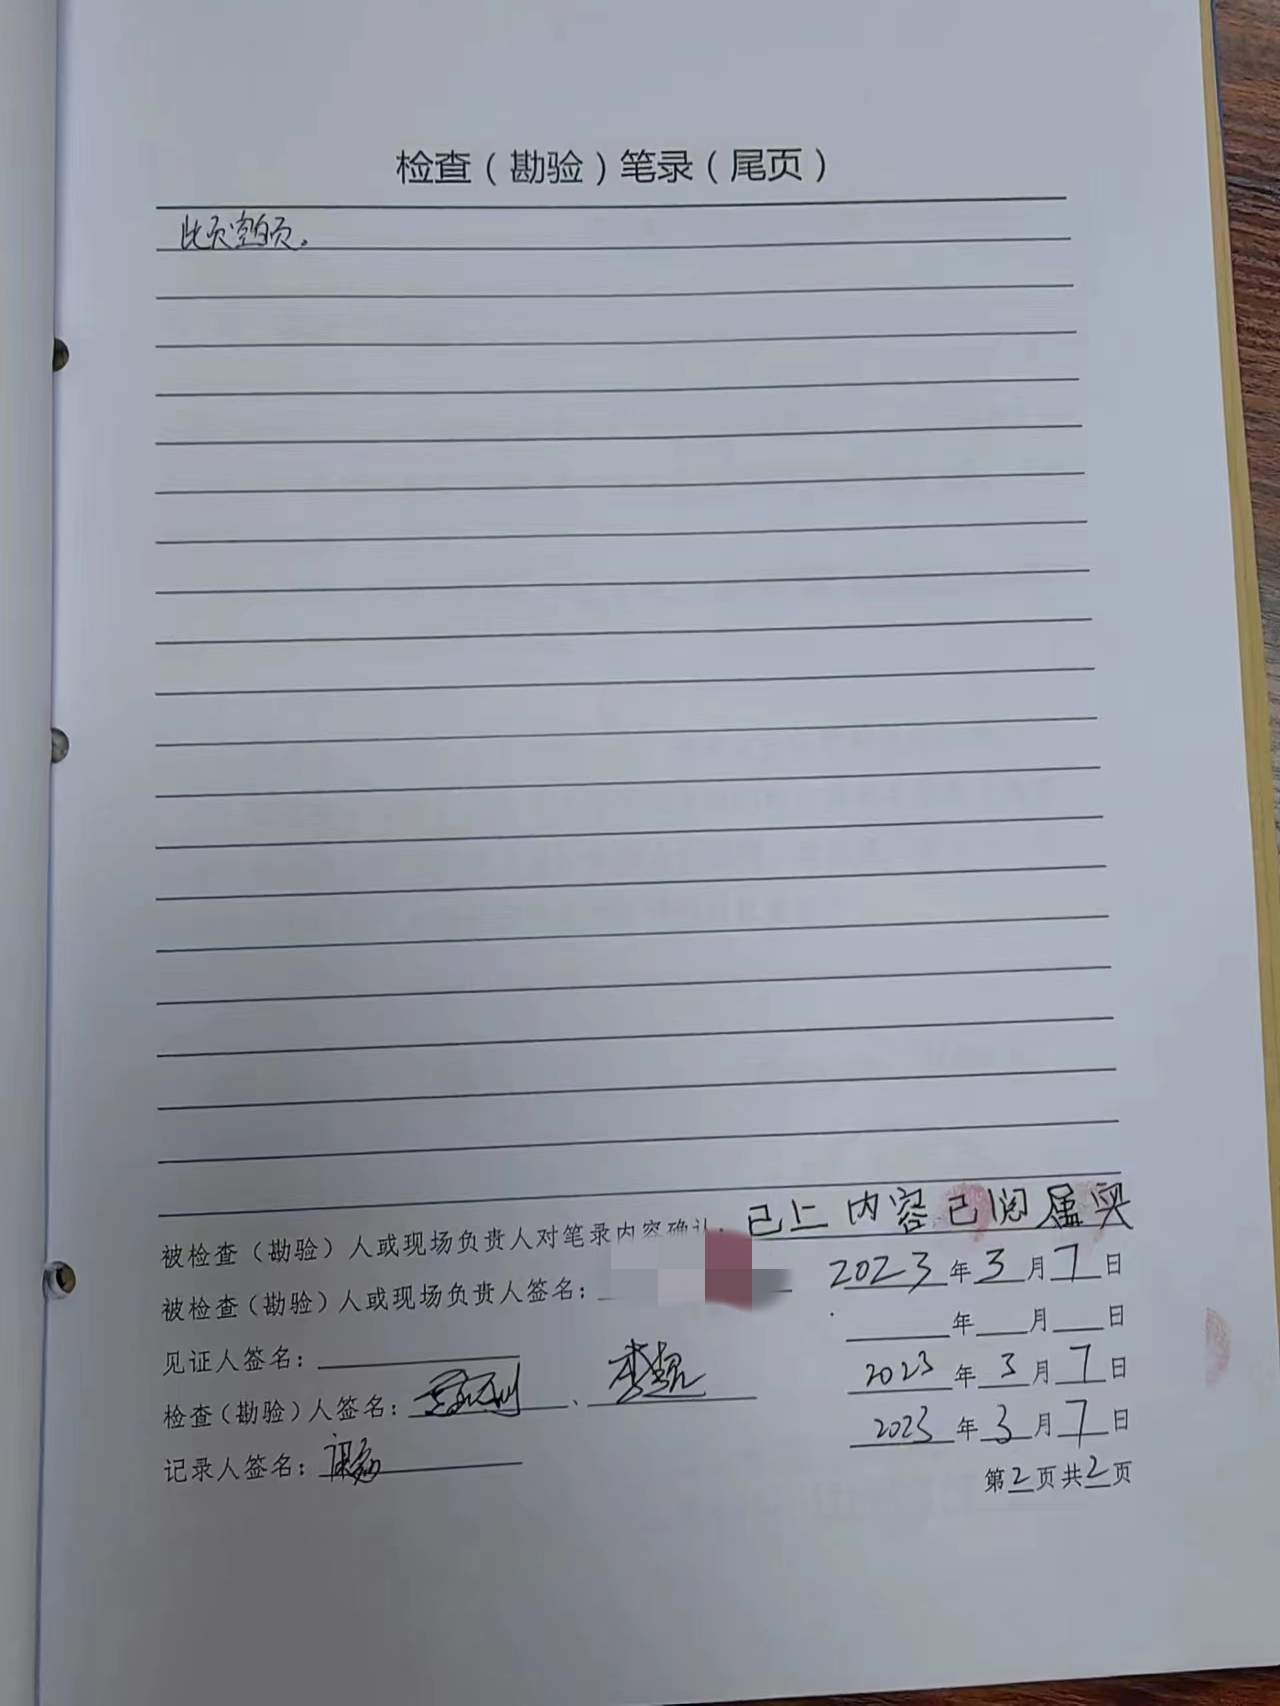 检查（勘验）笔录（尾页）
此页空白页。
被检查（勘验）人或现场负责人对笔录内容确认：已上内容已阅属实
被检查（勘验）人或现场负责人签名： 2023年3月7日
见证人签名： 年 月 日
检查（勘验）人签名： 、李 2023年3月7日
记录人签名： 2023年3月7日
第2页共2页